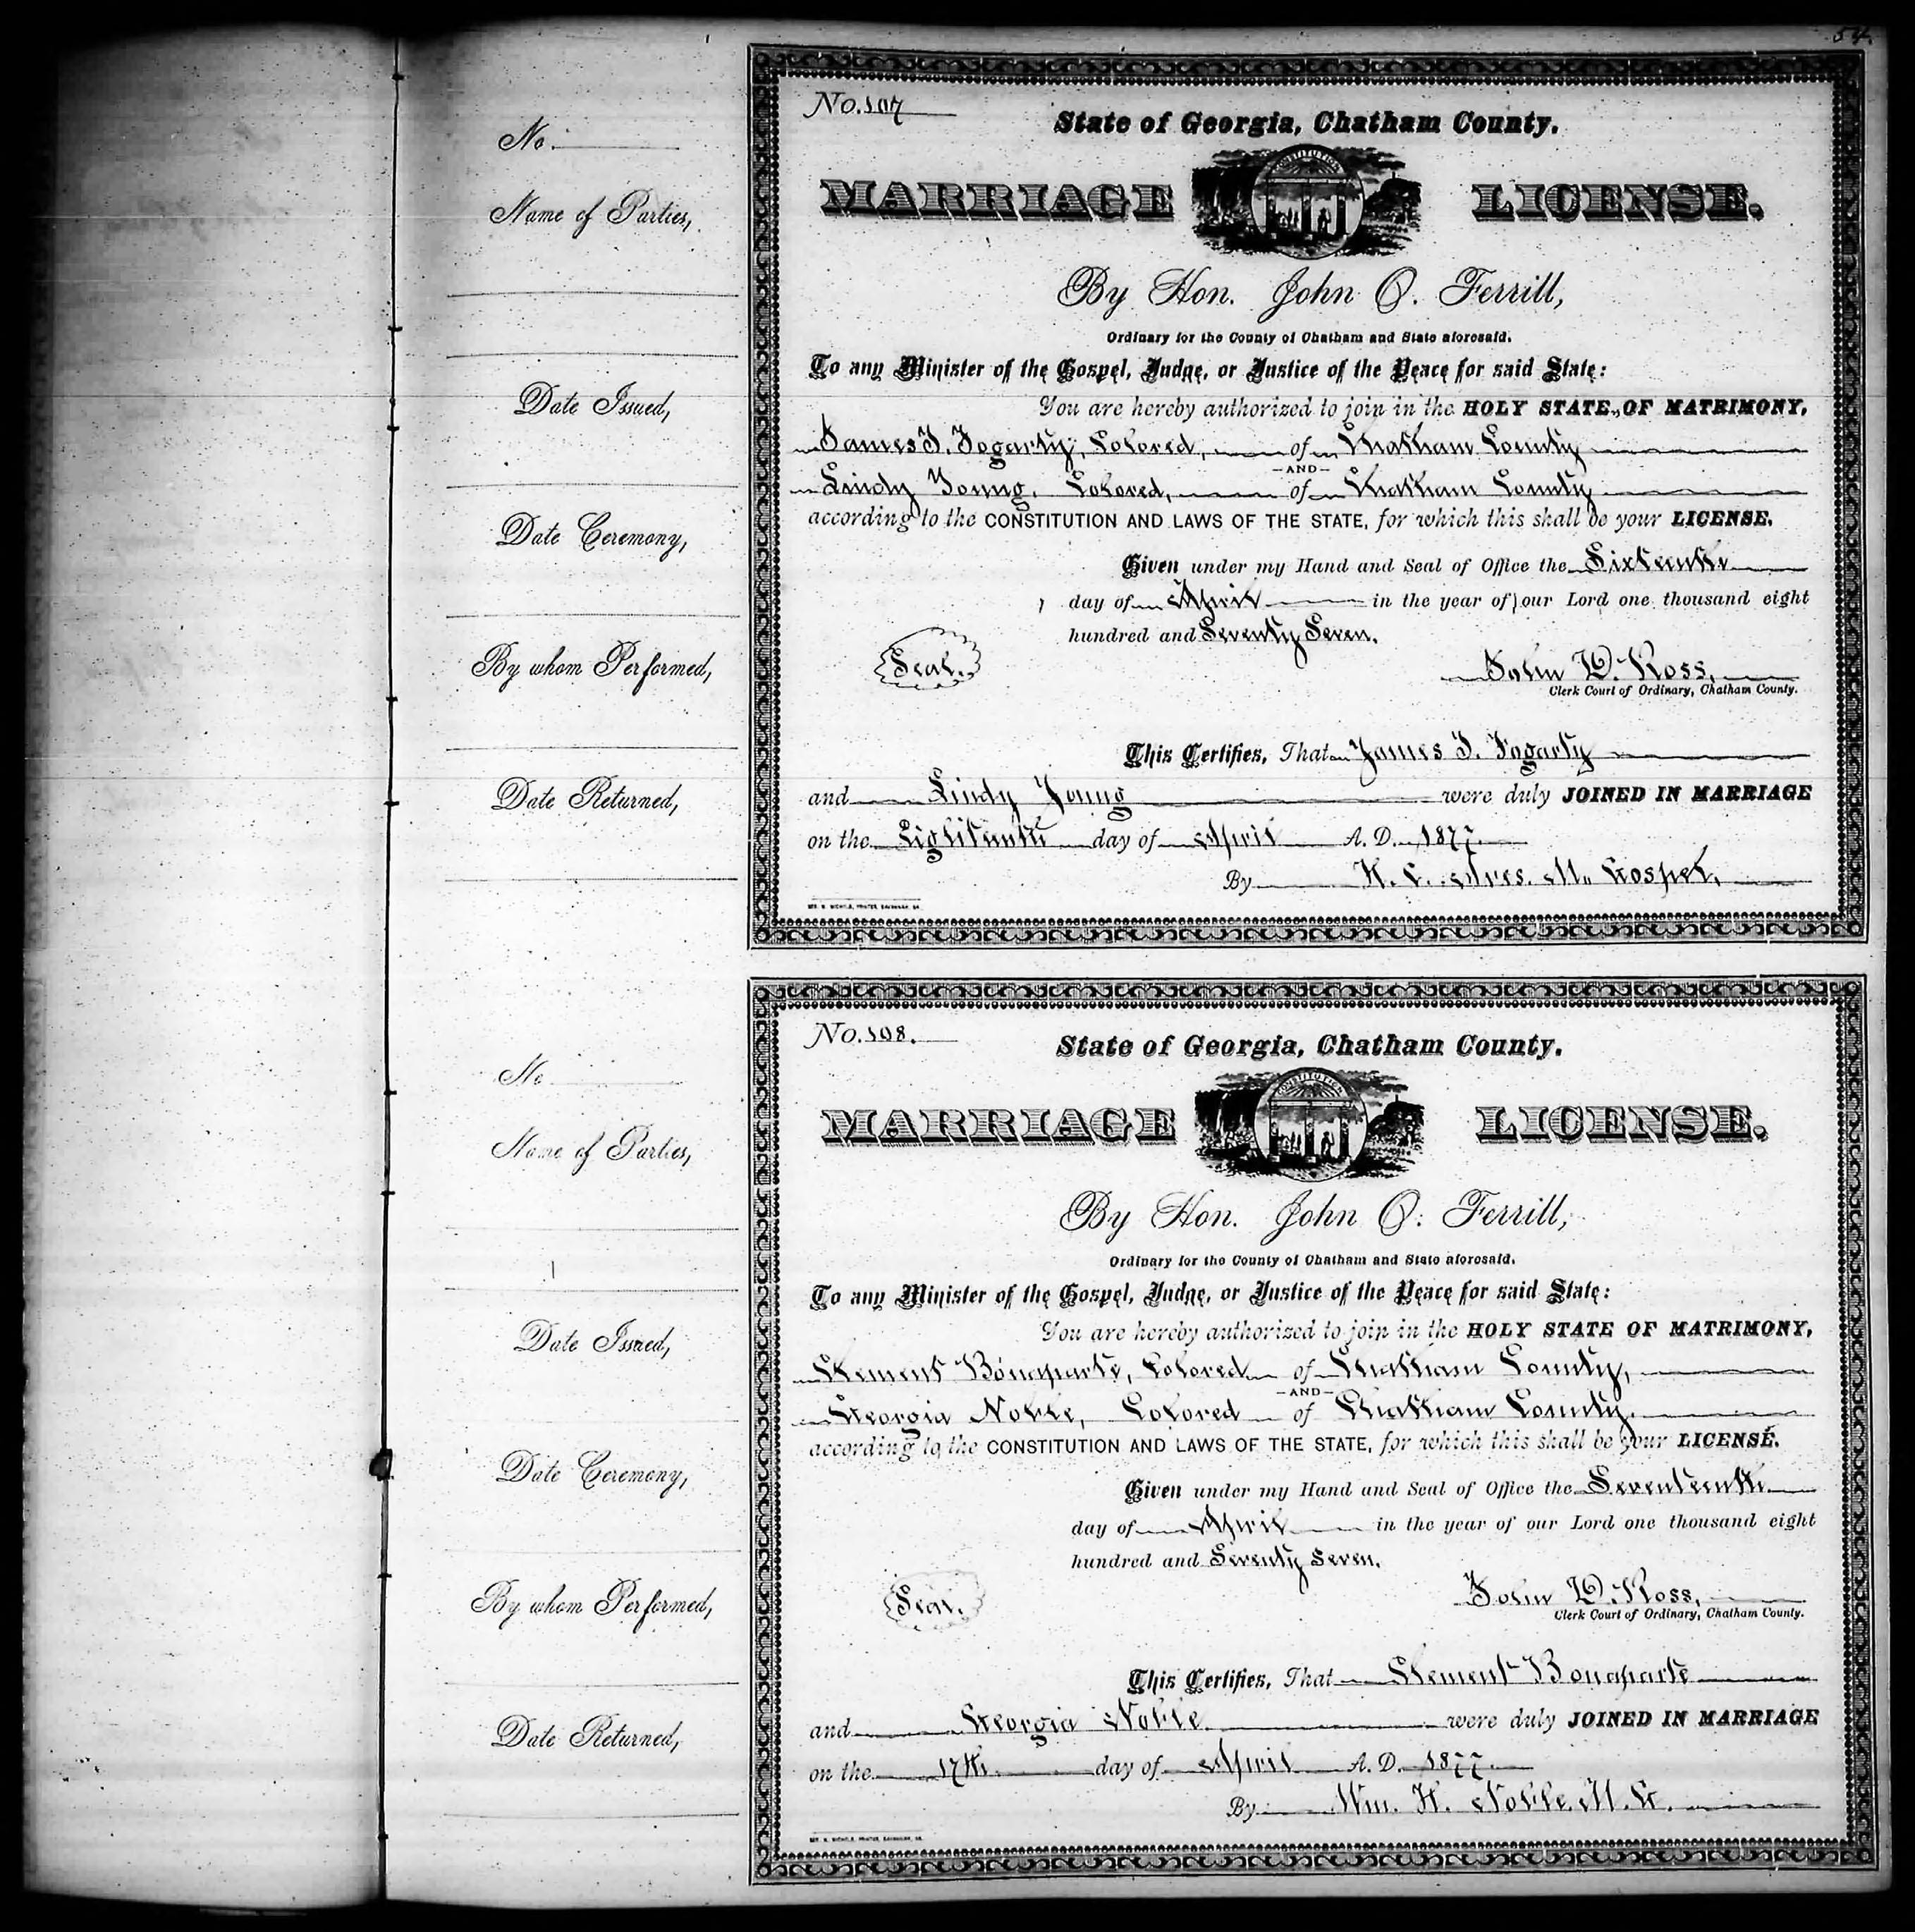 54.
No.
Name of Parties,
Date Issued,
Date Ceremony,
By whom Performed,
Date Returned,
No. 107
State of Georgia, Chatham County.
MARRIAGE LICENSE.
CONSTITUTION
By Hon. John O. Ferrill,
Ordinary for the County of Chatham and State aforesaid.
To any Minister of the Gospel, Judge, or Justice of the Peace for said State:
You are hereby authorized to join in the HOLY STATE OF MATRIMONY,
James T. Fogarty, Colored, of Chatham County
—AND—
Lindy Young, Colored, of Chatham County
according to the CONSTITUTION AND LAWS OF THE STATE, for which this shall be your LICENSE.
Given under my Hand and Seal of Office the Sixteenth
day of April in the year of our Lord one thousand eight
hundred and Seventy Seven.
Seal.
John D. Ross,
Clerk Court of Ordinary, Chatham County.
This Certifies, That James T. Fogarty
and Lindy Young were duly JOINED IN MARRIAGE
on the Eighteenth day of April A. D. 1877.
By M. Gospel,
No.
Name of Parties,
Date Issued,
Date Ceremony,
By whom Performed,
Date Returned,
No. 108.
State of Georgia, Chatham County.
MARRIAGE LICENSE.
CONSTITUTION
By Hon. John O. Ferrill,
Ordinary for the County of Chatham and State aforesaid.
To any Minister of the Gospel, Judge, or Justice of the Peace for said State:
You are hereby authorized to join in the HOLY STATE OF MATRIMONY,
Clement Bonaparte, Colored of Chatham County,
—AND—
Georgia Noble, Colored of Chatham County.
according to the CONSTITUTION AND LAWS OF THE STATE, for which this shall be your LICENSE.
Given under my Hand and Seal of Office the Seventeenth
day of April in the year of our Lord one thousand eight
hundred and Seventy Seven.
Seal.
John D. Ross,
Clerk Court of Ordinary, Chatham County.
This Certifies, That Clement Bonaparte
and Georgia Noble were duly JOINED IN MARRIAGE
on the 17th day of April A. D. 1877.
By Wm. H. Noble. M. G.